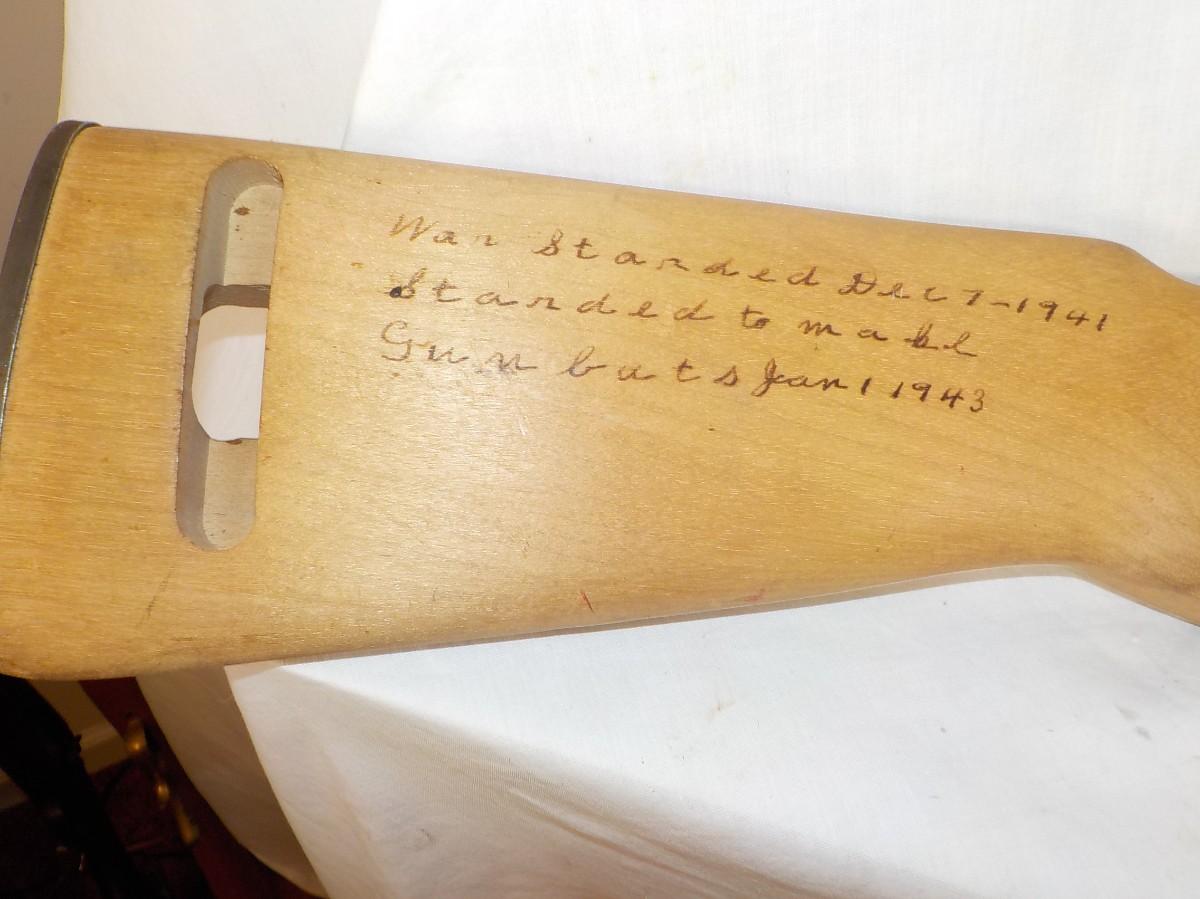 War Starded Dec 7-1941
Starded to make
Gun buts Jan 1 1943